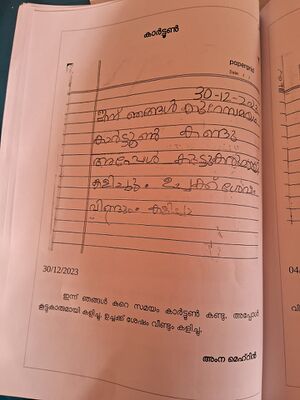 കാർട്ടൂൺ
papergrid
Date: / /
30-12-202
ഇന്ന് ഞങ്ങൾ കുറേസമയം
കാർട്ടൂൺ കണ്ടു
അപ്പോൾ
കളിച്ചു. ഉച്ചക്ക് ശേഷം
വീണ്ടും കളിച്ചു
30/12/2023
ഇന്ന് ഞങ്ങൾ കുറെ സമയം കാർട്ടൂൺ കണ്ടു. അപ്പോൾ
കൂട്ടുകാരുമായി കളിച്ചു. ഉച്ചക്ക് ശേഷം വീണ്ടും കളിച്ചു.
അംന മെഹ്റിൻ